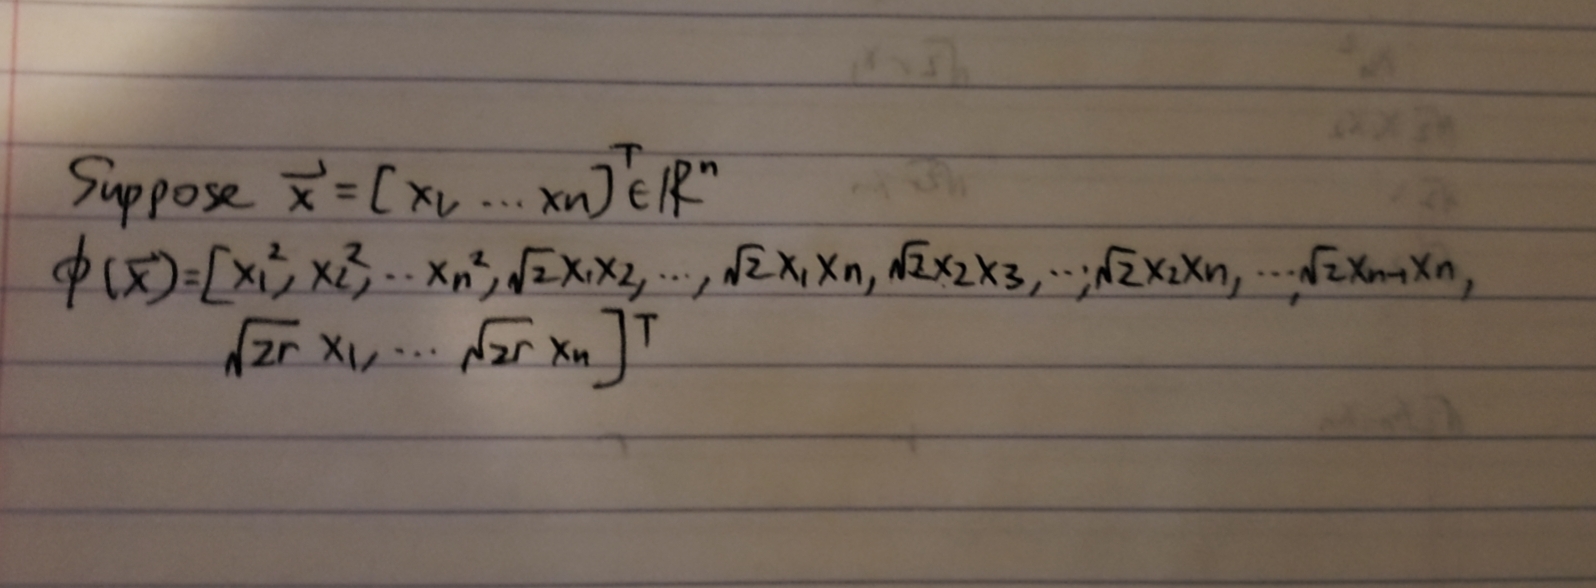 Suppose x⃗ = [x₁, ... xn]ᵀ ∈ ℝⁿ
ϕ(x⃗) = [x₁², x₂², ... xn², √2x₁x₂, ..., √2x₁xn, √2x₂x₃, ..., √2x₂xn, ..., √2xn-1xn,
√2r x₁, ... √2r xn]ᵀ